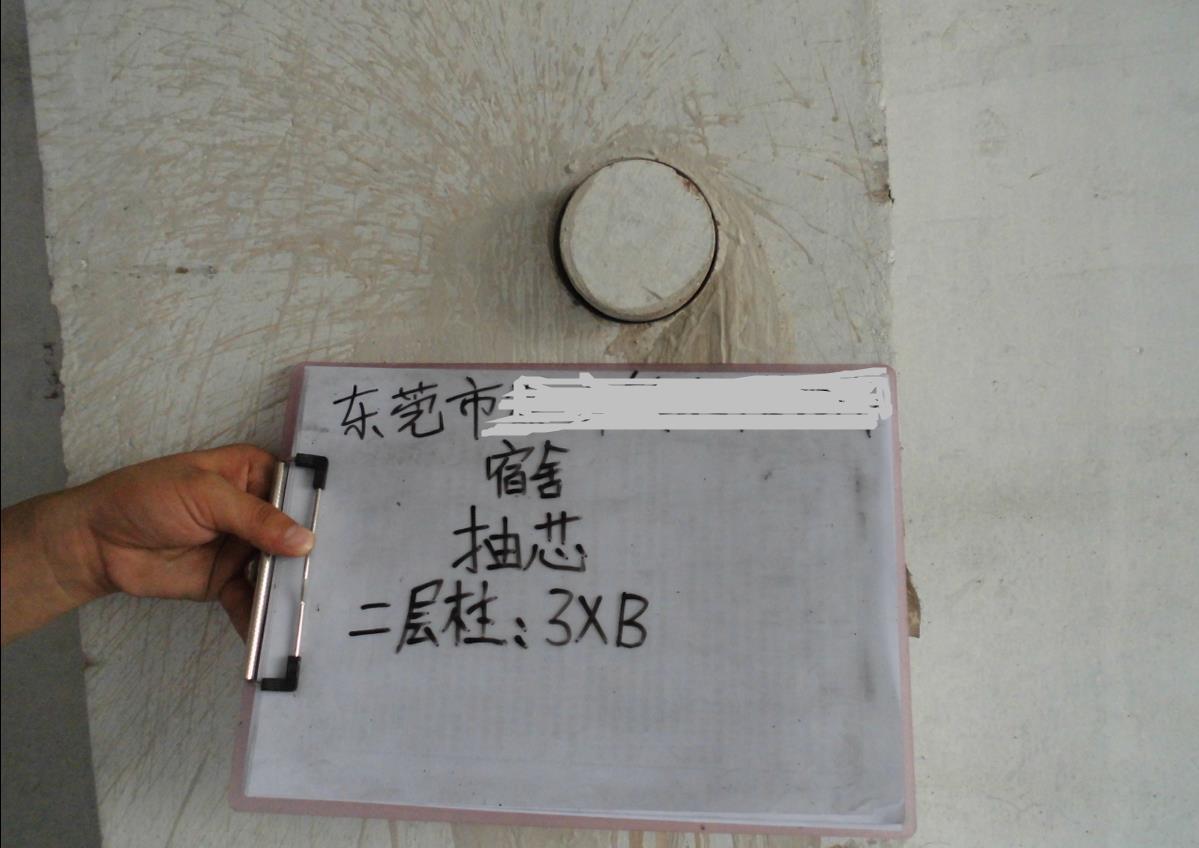 东莞市
宿舍
抽芯
二层柱：3XB